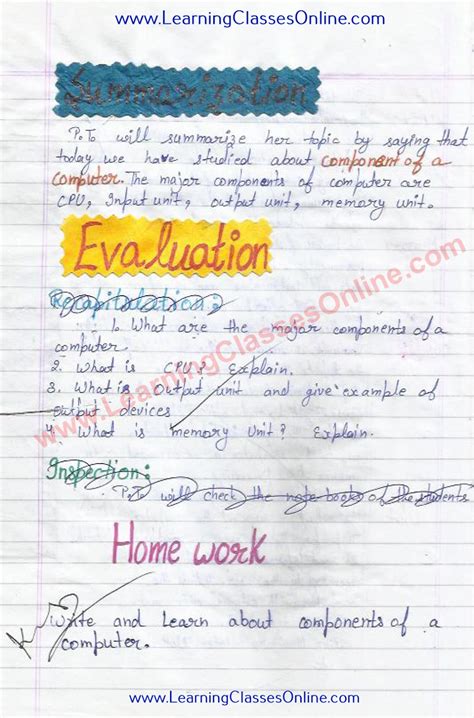 www.LearningClassesOnline.com
Summarization
P.To will summarize her topic by saying that
today we have studied about component of a
computer. The major components of computer are
CPU, Input unit, output unit, memory unit.
Evaluation
Recapitulation:
1. What are the major components of a
computer
2. What is CPU? Explain.
3. What is Output unit and give example of
output devices
4. What is memory Unit? Explain.
Inspection:
P.To will check the note books of the students
Home work
Write and Learn about components of a
computer.
www.LearningClassesOnline.com
www.LearningClassesOnline.com